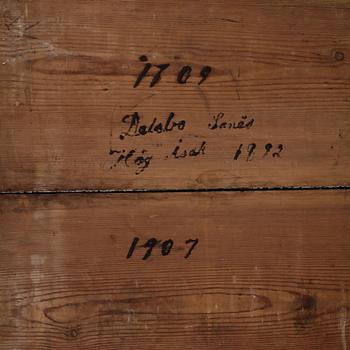 1709
Delsbo Sanës
Hög Isak 1892
1907